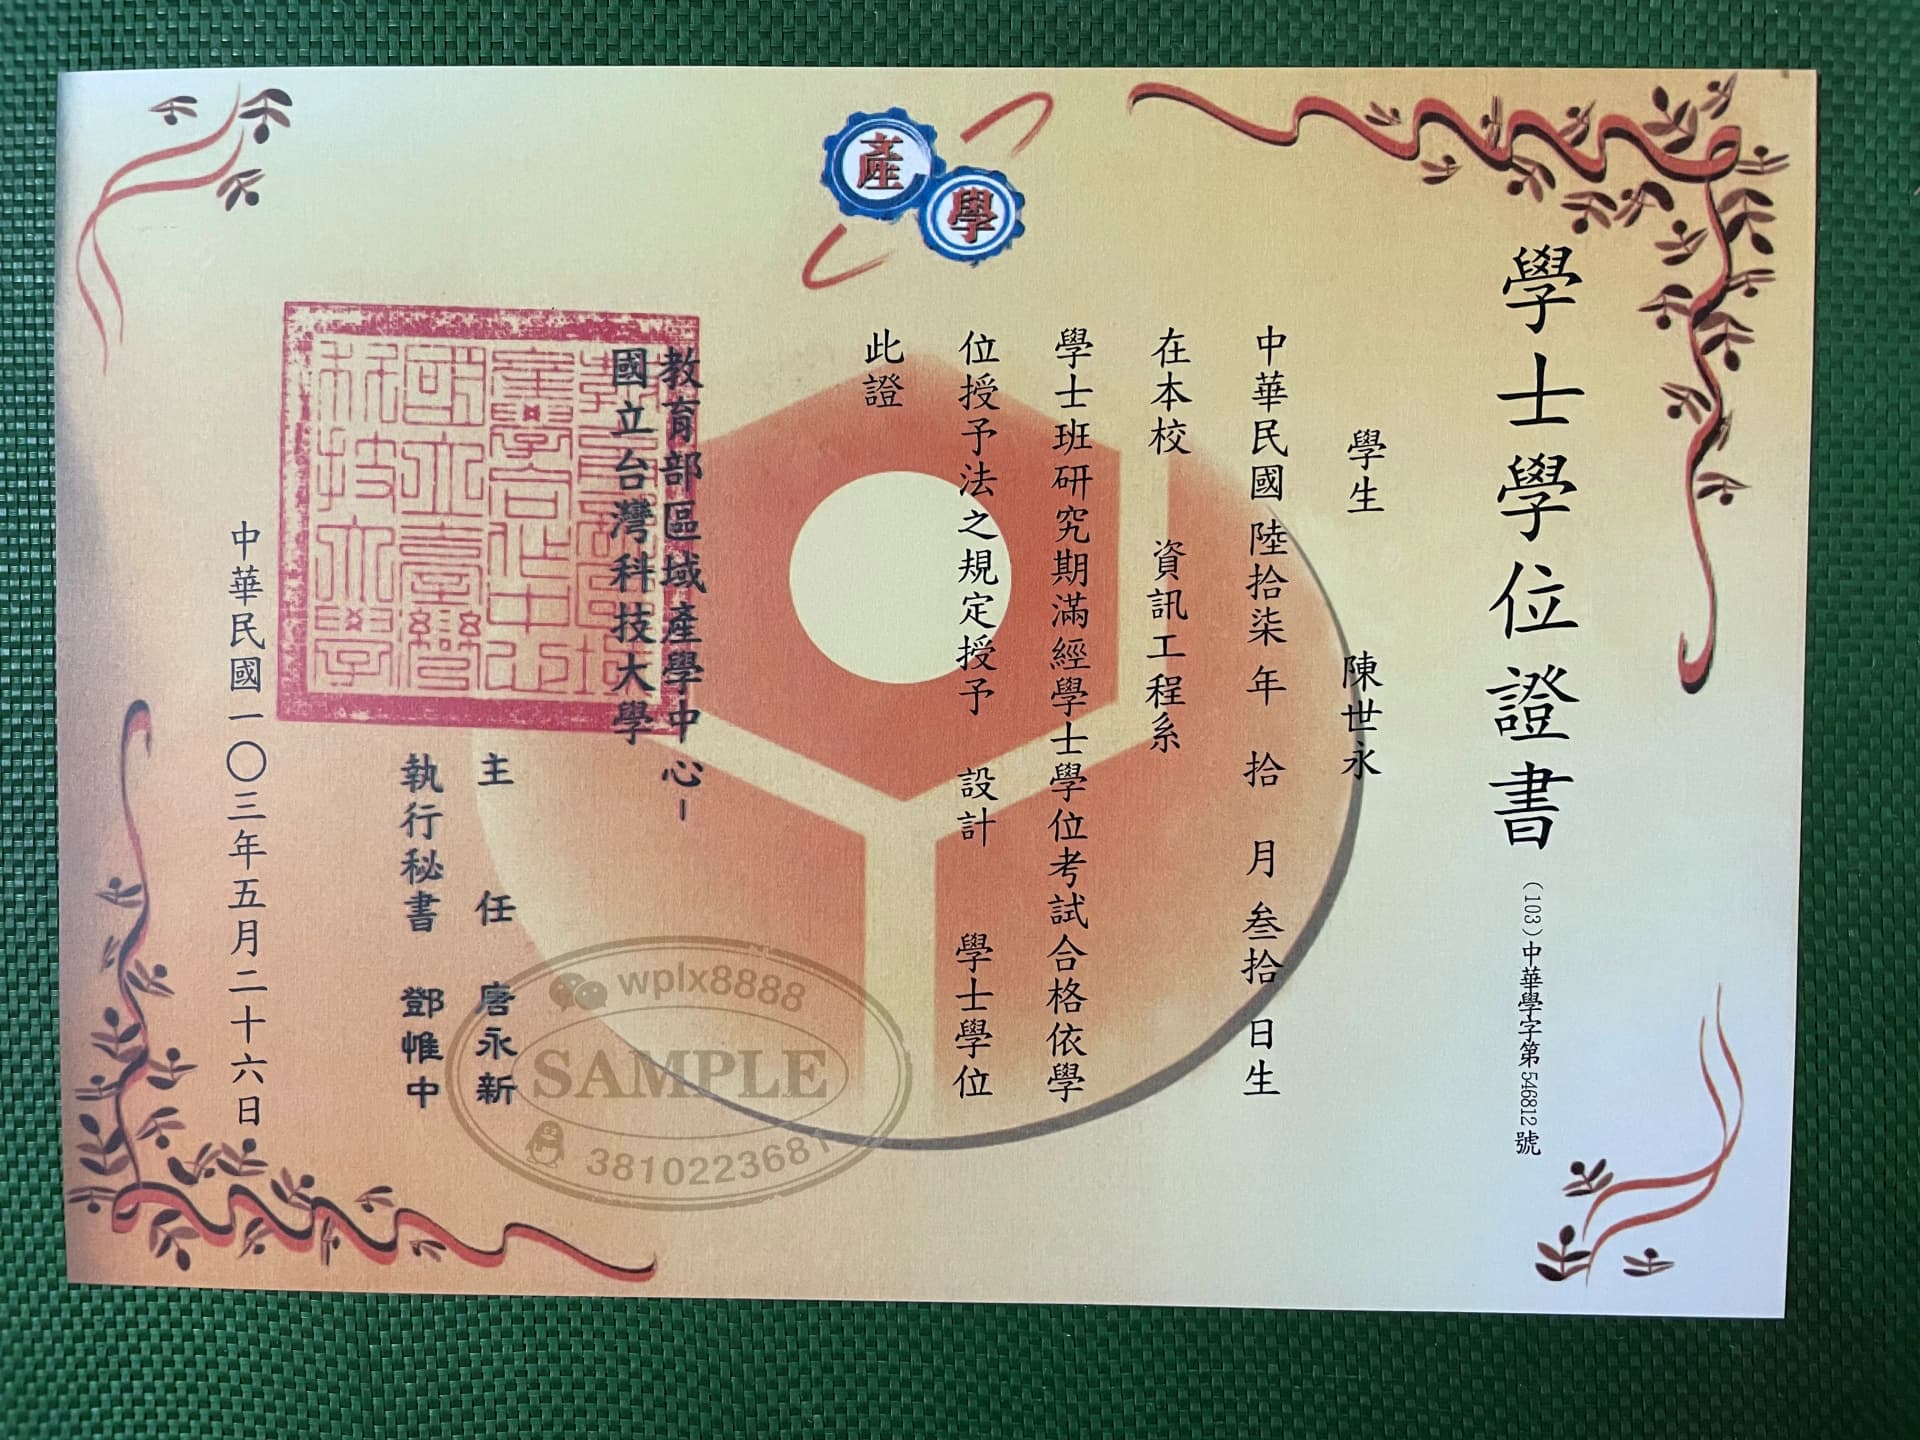 產學
學士學位證書
(103)中華學字第546812號
學生 陳世永
中華民國陸拾柒年 拾 月叁拾 日生
在本校 資訊工程系
學士班研究期滿經學士學位考試合格依學
位授予法之規定授予 設計 學士學位
此證
教育部區域產學中心-
國立台灣科技大學
主 任 唐永新
執行秘書 鄧惟中
中華民國一〇三年五月二十六日
wplx8888
SAMPLE
3810223681